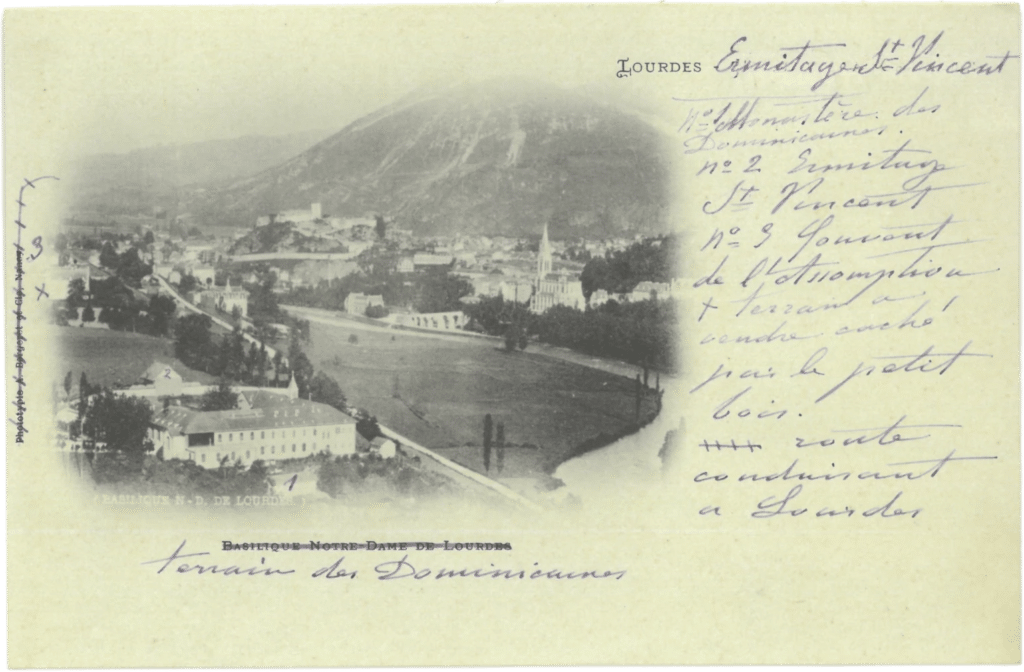 LOURDES Ermitage St Vincent
No 1 Monastère des
Dominicaines.
No 2 Ermitage
St Vincent
No 3 Couvent
de l'Assomption
+ terrain a
vendre caché
par le petit
bois.
++++ route
conduisant
a Lourdes
3
2
1
BASILIQUE N.-D. DE LOURDES
BASILIQUE NOTRE-DAME DE LOURDES
terrain des Dominicaines